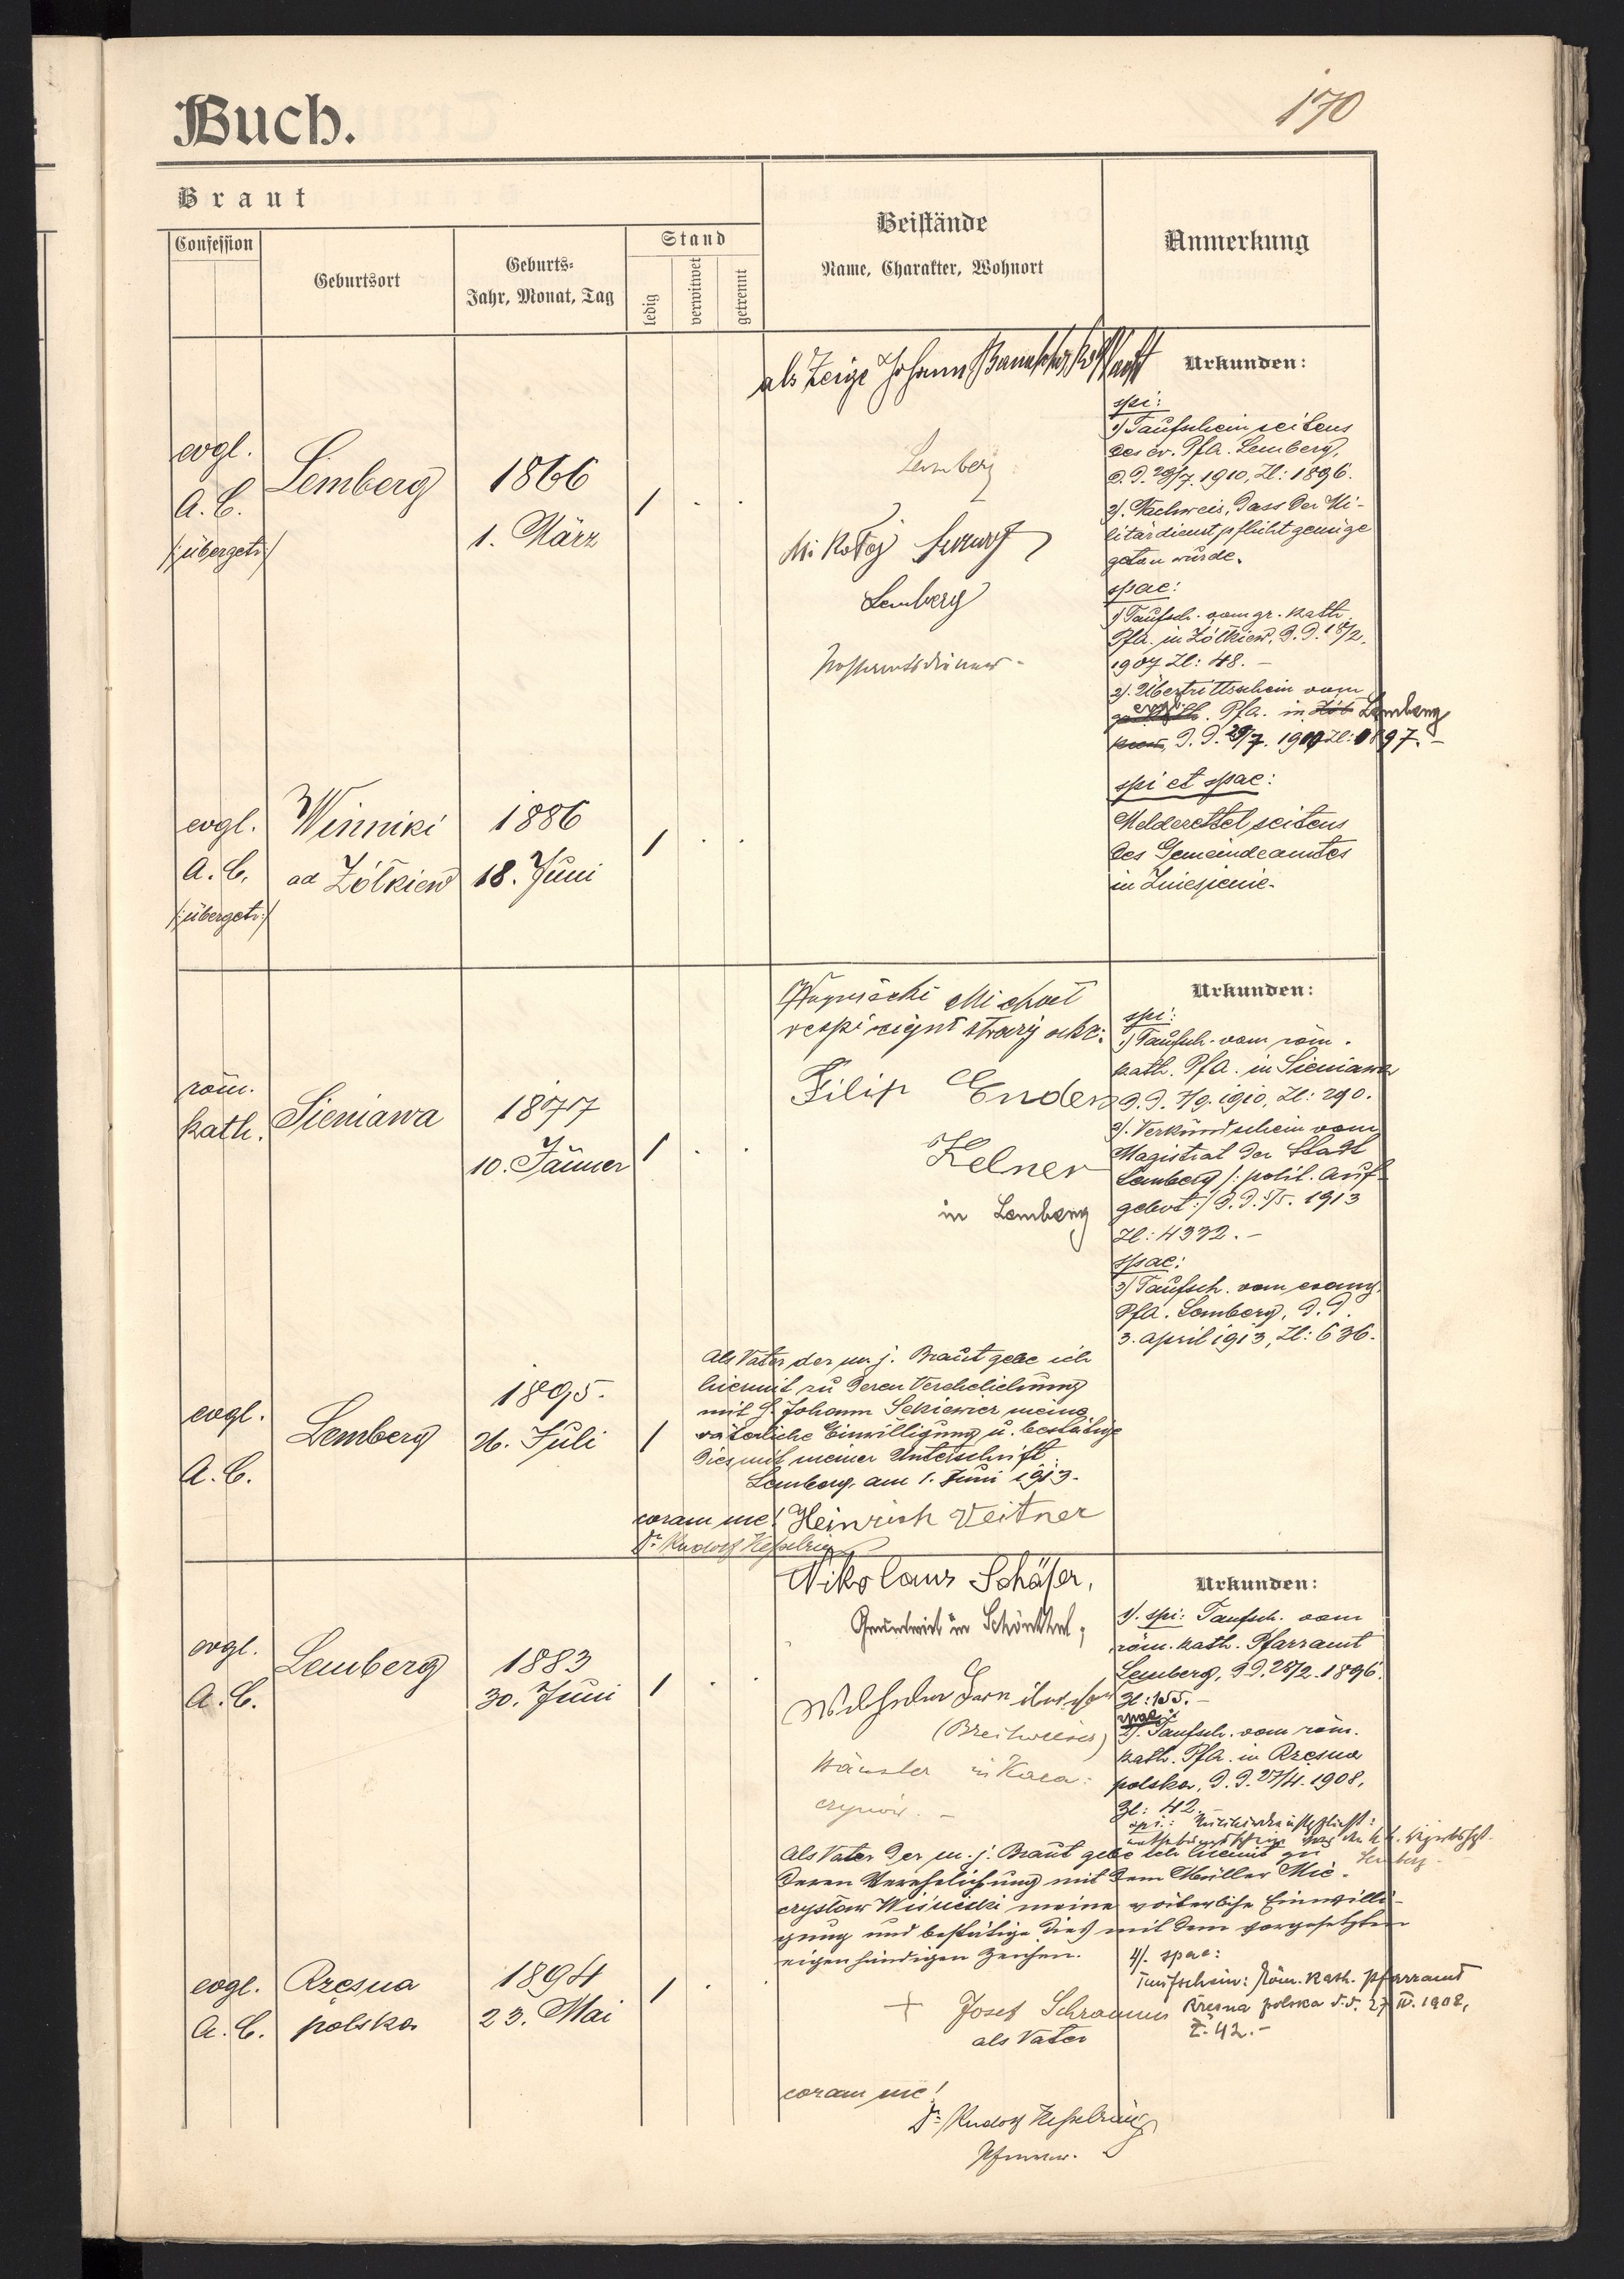 Buch.
170
Braut
Confession
Geburtsort
Geburts-
Jahr, Monat, Tag
Stand
ledig
verwitwet
getrennt
Beistände
Name, Charakter, Wohnort
Anmerkung
evgl.
A. C.
/:übergetr:/
Lemberg
1866
1. März
als Zeuge Johann
Lemberg
Mikołaj
Lemberg
Urkunden:
spi:
1) Taufschein seitens
des ev. Pfa. Lemberg,
d. d. 29/7. 1910, Zl: 1896.
2). Nachweis, dass der Mi-
litärdienstpflicht genüge
getan wurde.
spae:
1) Taufsch. vom gr. kath
Pfa. in Żółkiew, d. d. 18/2.
1907 Zl: 48. –
2). Übertrittsschein vom
evgl. Pfa. in Lemberg
d. d. 29/7. 1910 Zl: 1897. –
spi et spae:
Meldezettel seitens
des Gemeindeamtes
in Zniesienie.
evgl.
A. C.
/:übergetr:/
Winniki
ad Żółkiew
1886
18. Juni
röm.
kath.
Sieniawa
1877
10. Jänner
Michał
respicient straży
Filip Enders
Kelner
in Lemberg
Urkunden:
spi:
1) Taufsch. vom röm.
kath. Pfa. in Sieniawa
d. d. 7/9. 1910, Zl: 290.
2). Verkündschein vom
Magistrat der Stadt
Lemberg /: polit. Auf-
gebot :/ d. d. 5/5. 1913
Zl: 4332. –
spae:
3) Taufsch. vom evang.
Pfa. Lemberg, d. d.
3. April 1913, Zl: 636.
evgl.
A. C.
Lemberg
1895.
26. Juli
Als Vater der m. j. Braut gebe ich
hiermit zu deren Verehelichung
mit H. Johann Sekiewicz meine
väterliche Einwilligung u. bestätige
dies mit meiner Unterschrift.
Lemberg, am 1. Juni 1913.
coram me! Heinrich Veitner
Dr. Rudolf Kesselring
evgl.
A. C.
Lemberg
1883
30. Juni
Nikolaus Schäfer,
Grundwirt in Schönthal;
Wilhelm
(Breitwieser)
Häusler in
Urkunden:
1). spi: Taufsch. vom
röm. kath. Pfarramt
Lemberg, d. d. 28/2. 1896.
Zl: 155. –
spae:
2). Taufsch. vom röm.
kath. Pfa. in Rzesna
polska, d. d. 27/4. 1908,
Zl: 42. –
spi.:
Lemberg
Als Vater der m. j. Braut gebe ich hiemit zu
deren Verehelichung mit dem Müller Mie-
czysław Wiśnicki meine väterliche Einwilli-
gung und bestätige dies mit dem vorgesetzten
eigenhändigen Zeichen.
4). spae:
Taufschein: Röm. kath. Pfarramt
Rzesna polska d. d. 27/IV. 1908,
Z. 42. –
evgl.
A. C.
Rzesna
polska
1894
23. Mai
+ Josef Schramm
als Vater
coram me!
Dr. Rudolf Kesselring
Pfarrer.